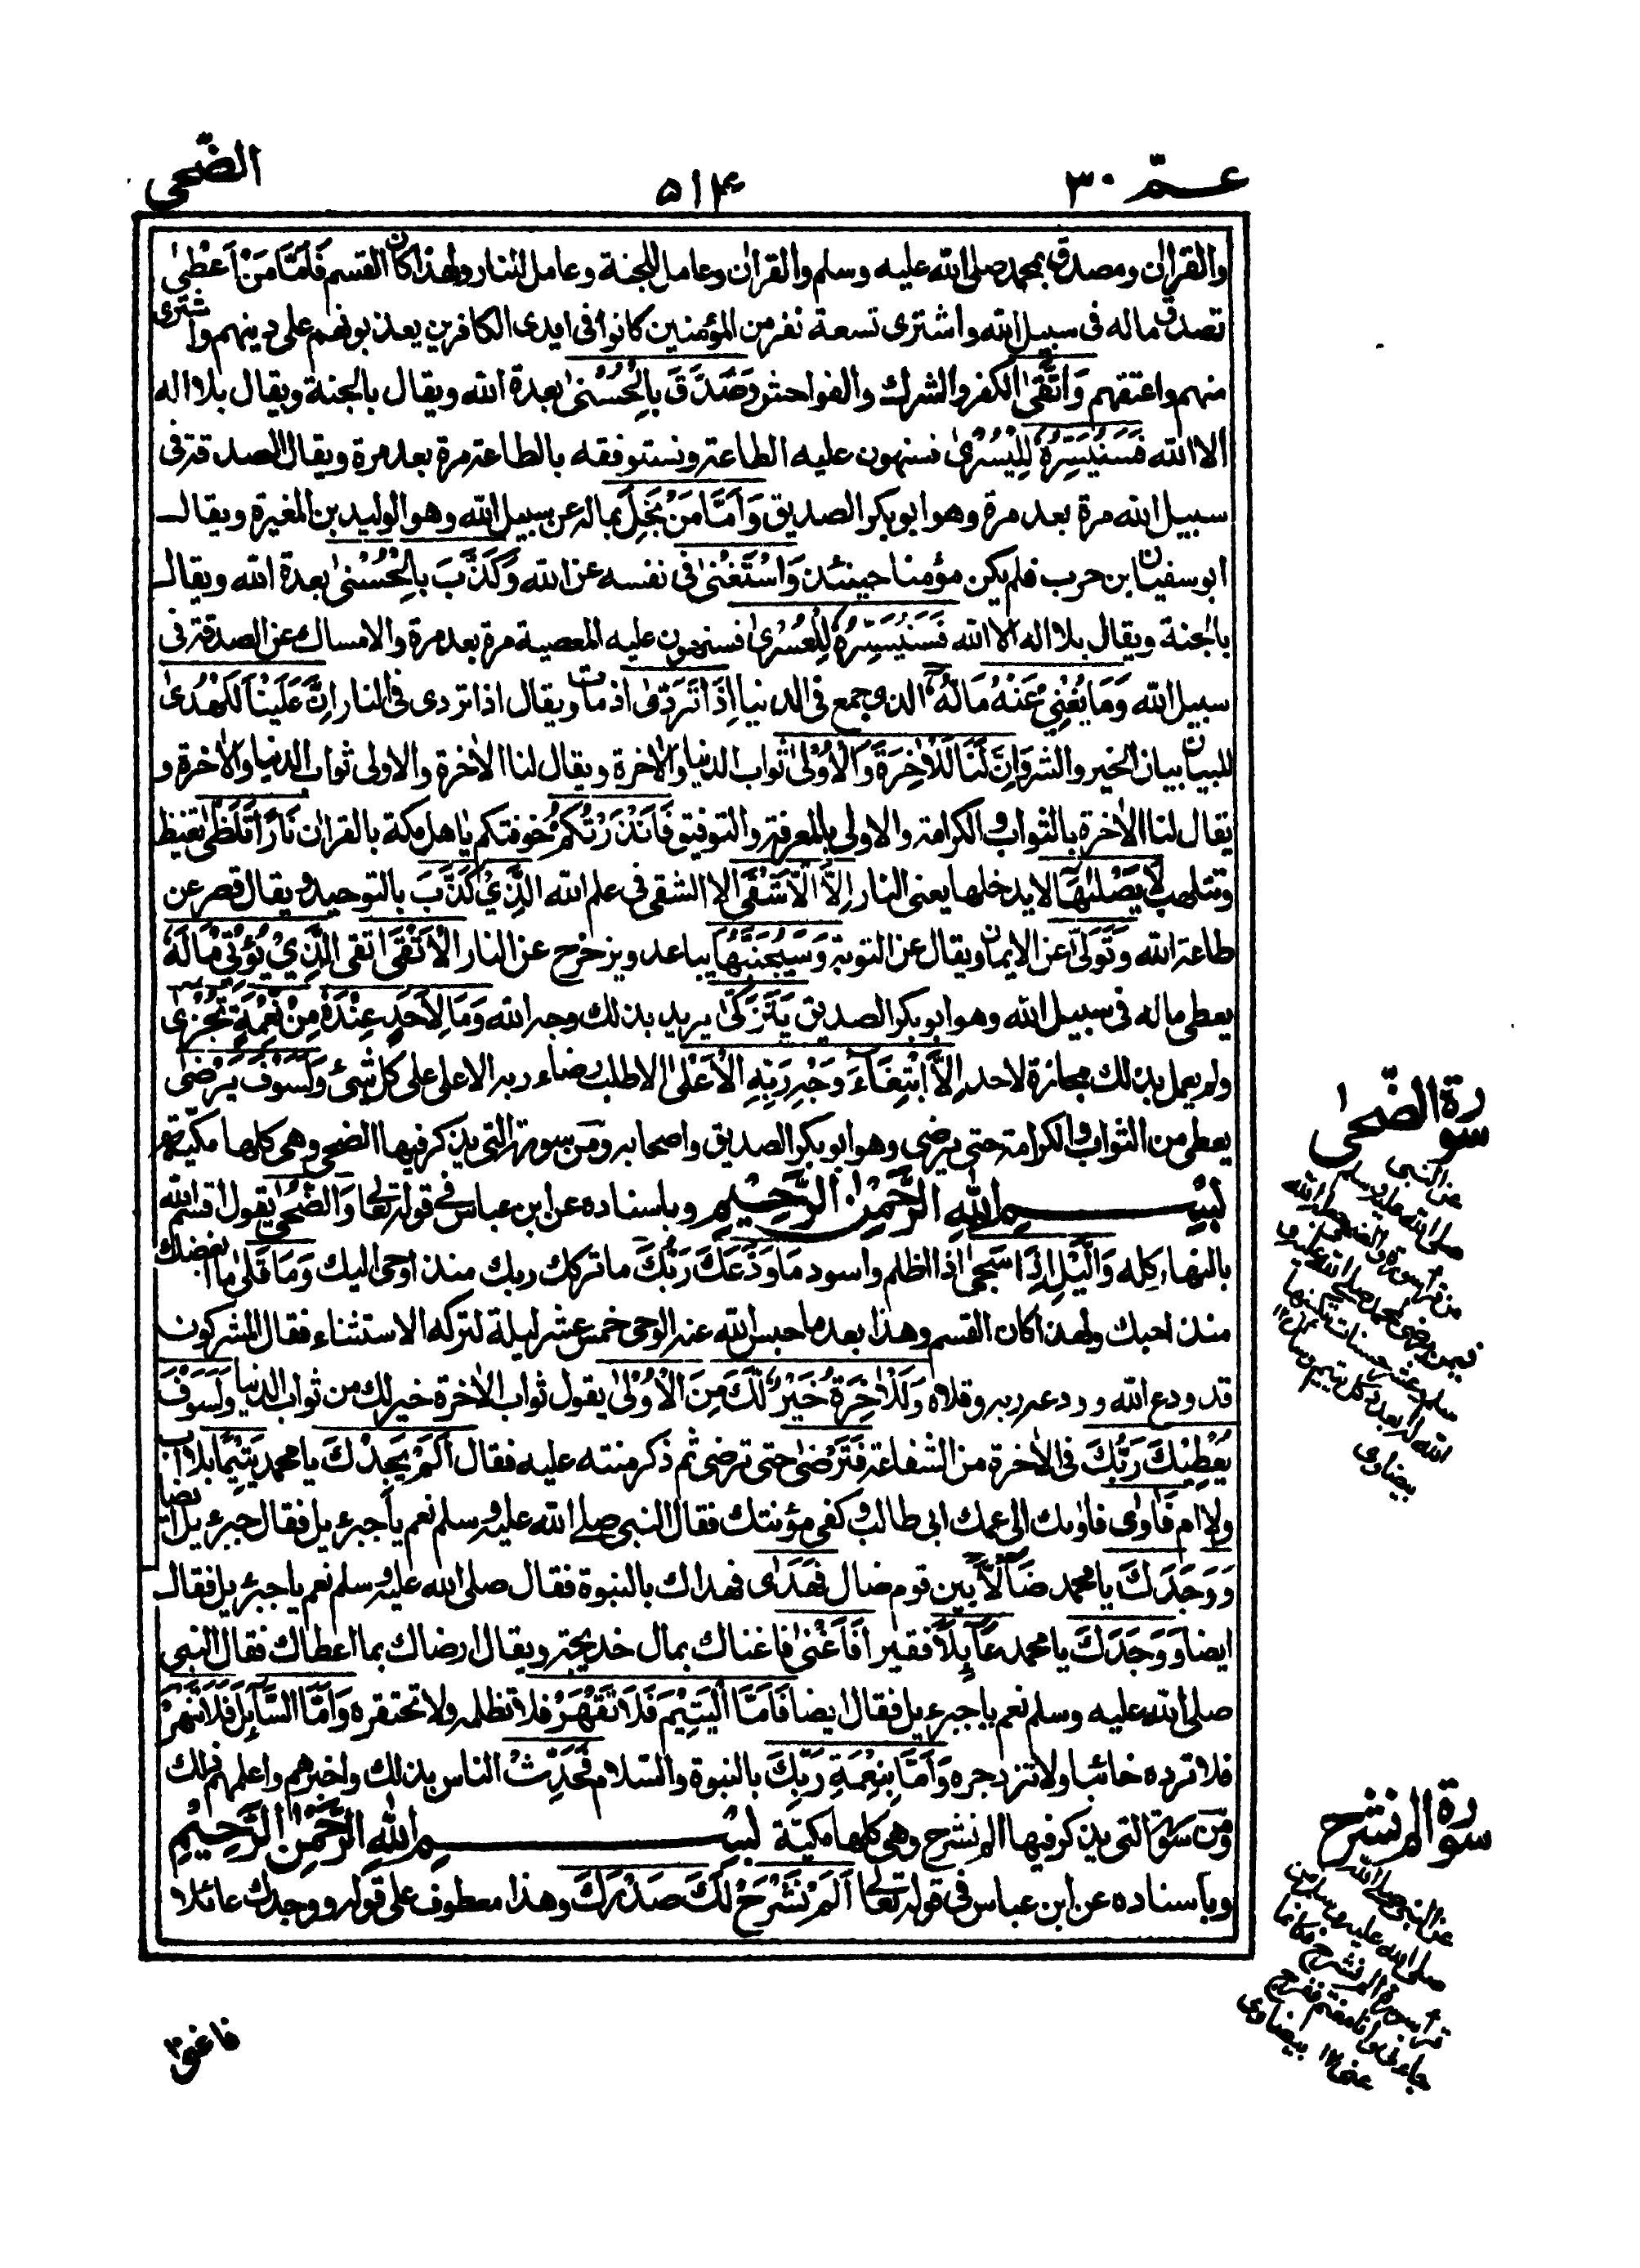 عـمّ ٣٠
٥١٤
الضّحى
والقرآن ومصدق بمحمد صلى الله عليه وسلم والقرآن وعامل للجنة وعامل للنار ولهذا كان القسم فَاَمَّا مَنْ اَعْطٰى
تصدق ماله فى سبيل الله واشترى تسعة نفر من المؤمنين كانوا فى ايدى الكافرين يعذبونهم على دينهم واشترى
منهم واعتقهم وَاتَّقٰى الكفر والشرك والفواحش وَصَدَّقَ بِالْحُسْنٰى بعدة الله ويقال بالجنة ويقال بلا اله
الا الله فَسَنُيَسِّرُهٗ لِلْيُسْرٰى فسنهون عليه الطاعة ونستوفقه بالطاعة مرة بعد مرة ويقال الصدقة فى
سبيل الله مرة بعد مرة وهو ابو بكر الصديق وَاَمَّا مَنْ بَخِلَ بماله عن سبيل الله وهو الوليد بن المغيرة ويقال
ابو سفيان بن حرب فلم يكن مؤمنا حينئذ وَاسْتَغْنٰى فى نفسه عن الله وَكَذَّبَ بِالْحُسْنٰى بعدة الله ويقال
بالجنة ويقال بلا اله الا الله فَسَنُيَسِّرُهٗ لِلْعُسْرٰى فسنهون عليه المعصية مرة بعد مرة والامساك عن الصدقة فى
سبيل الله وَمَا يُغْنِيْ عَنْهُ مَالُهٗٓ الذى جمع فى الدنيا اِذَا تَرَدّٰى اذ مات ويقال اذا تردى فى النار اِنَّ عَلَيْنَا لَلْهُدٰى
للبيان بيان الخير والشر وَاِنَّ لَنَا لَلْاٰخِرَةَ وَالْاُوْلٰى ثواب الدنيا والاٰخرة ويقال لنا الاٰخرة والاولى ثواب الدنيا والاٰخرة و
يقال لنا الاٰخرة بالثواب والكرامة والاولى بالمعرفة والتوفيق فَاَنْذَرْتُكُمْ خوفتكم يا اهل مكة بالقرآن نَارًا تَلَظّٰى تغيظ
وتتلهب لَا يَصْلٰىهَآ لا يدخلها يعنى النار اِلَّا الْاَشْقَى الا الشقى فى علم الله الَّذِيْ كَذَّبَ بالتوحيد ويقال قصر عن
طاعة الله وَتَوَلّٰى عن الايمان ويقال عن التوبة وَسَيُجَنَّبُهَا يباعد ويزحزح عن النار الْاَتْقَى اتقى الَّذِيْ يُؤْتِيْ مَالَهٗ
يعطى ماله فى سبيل الله وهو ابو بكر الصديق يَتَزَكّٰى يريد بذلك وجه الله وَمَا لِاَحَدٍ عِنْدَهٗ مِنْ نِّعْمَةٍ تُجْزٰٓى
ولم يعمل بذلك مجازة لاحد اِلَّا ابْتِغَآءَ وَجْهِ رَبِّهِ الْاَعْلٰى الا طلب رضاء ربه الاعلى على كل شىء وَلَسَوْفَ يَرْضٰى
يعطى من الثواب والكرامة حتى يرضى وهو ابو بكر الصديق واصحابه ومن سورة التى يذكر فيها الضحى وهى كلها مكيّة
بِسْـــــمِ اللهِ الرَّحْمٰنِ الرَّحِيْمِ وباسناده عن ابن عباس فى قوله تعالى وَالضُّحٰى يقول اقسم الله
بالنهار كله وَالَّيْلِ اِذَا سَجٰى اذا اظلم واسود مَا وَدَّعَكَ رَبُّكَ ما تركك ربك منذ اوحى اليك وَمَا قَلٰى ما ابغضك
منذ احبك ولهذا كان القسم وهذا بعد ما حبس الله عنه الوحى خمس عشر ليلة لتركه الاستثناء فقال المشركون
قد ودع الله وردعه ربه وقلاه وَلَلْاٰخِرَةُ خَيْرٌ لَّكَ مِنَ الْاُوْلٰى يقول ثواب الاٰخرة خير لك من ثواب الدنيا وَلَسَوْفَ
يُعْطِيْكَ رَبُّكَ فى الاٰخرة من الشفاعة فَتَرْضٰى حتى ترضى ثم ذكر منته عليه فقال اَلَمْ يَجِدْكَ يا محمد يَتِيْمًا بلا اب
ولا ام فَاٰوٰى فاٰوىك الى عمك ابى طالب وكفى مؤنتك فقال النبى صلى الله عليه وسلم نعم يا جبرءيل فقال جبرءيل ايضا
وَوَجَدَكَ يا محمد ضَآلًّا بين قوم ضال فَهَدٰى فهداك بالنبوة فقال صلى الله عليه وسلم نعم يا جبرءيل فقال
ايضا وَوَجَدَكَ يا محمد عَآئِلًا فقيرا فَاَغْنٰى فاغناك بمال خديجة ويقال ارضاك بما اعطاك فقال النبى
صلى الله عليه وسلم نعم يا جبرءيل فقال ايضا فَاَمَّا الْيَتِيْمَ فَلَا تَقْهَرْ فلا تظلمه ولا تحتقره وَاَمَّا السَّآئِلَ فَلَا تَنْهَرْ
فلا ترده خائبا ولا تزدجره وَاَمَّا بِنِعْمَةِ رَبِّكَ بالنبوة والاسلام فَحَدِّثْ الناس بذلك واخبرهم واعلمهم ذلك
ومن سورة التى يذكر فيها الم نشرح وهى كلها مكيّة بِسْـــــمِ اللهِ الرَّحْمٰنِ الرَّحِيْمِ
وباسناده عن ابن عباس فى قوله تعالى اَلَمْ نَشْرَحْ لَكَ صَدْرَكَ وهذا معطوف على قوله ووجدك عائلا
سورة الضّحى
عن النبى
صلى الله عليه وسلم
من قرأ سورة والضحى جعله الله
فيمن يرضى لمحمد صلى الله عليه و
سلم وعشر حسنات يكتبها
الله له بعدد كل يتيم وسائل ١٢
بيضاوى
سورة الم نشرح
عن النبى صلى الله
صلى الله عليه وسلم من
قرأ سورة الم نشرح فكانما
جاءنى وانا مغتم ففرج
عنى ١٢ بيضاوى
فاغنى